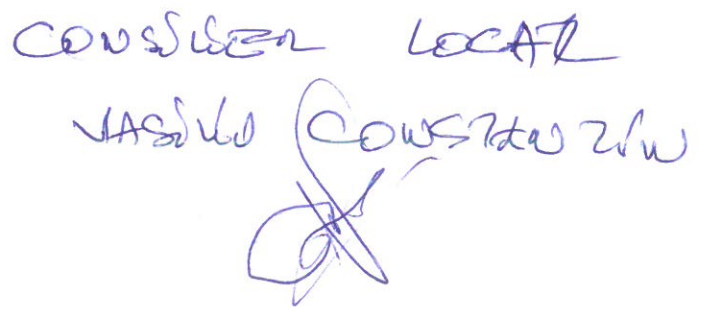 CONSILIER LOCAL
VASILIU CONSTANTIN